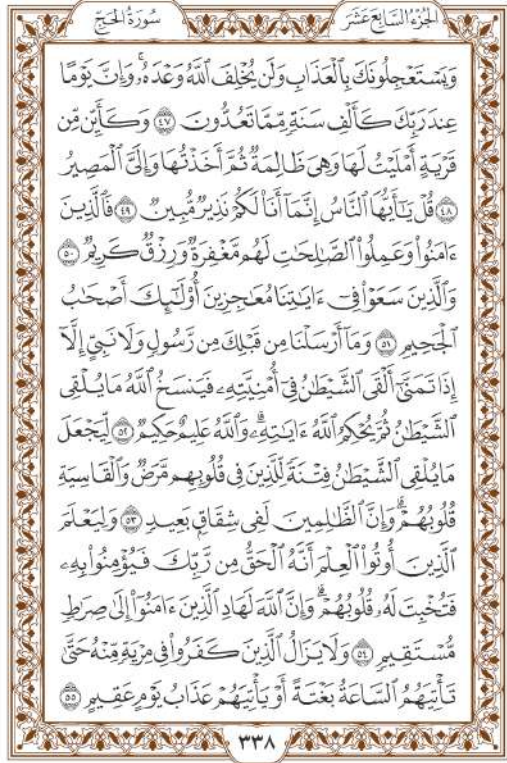 الجُزْءُ السَّابِعَ عَشَرَ
سُورَةُ الحَجِّ
وَيَسۡتَعۡجِلُونَكَ بِٱلۡعَذَابِ وَلَن يُخۡلِفَ ٱللَّهُ وَعۡدَهُۥۚ وَإِنَّ يَوۡمًا
عِندَ رَبِّكَ كَأَلۡفِ سَنَةٖ مِّمَّا تَعُدُّونَ ٤٧ وَكَأَيِّن مِّن
قَرۡيَةٍ أَمۡلَيۡتُ لَهَا وَهِيَ ظَالِمَةٞ ثُمَّ أَخَذۡتُهَا وَإِلَيَّ ٱلۡمَصِيرُ
٤٨ قُلۡ يَٰٓأَيُّهَا ٱلنَّاسُ إِنَّمَآ أَنَا۠ لَكُمۡ نَذِيرٞ مُّبِينٞ ٤٩ فَٱلَّذِينَ
ءَامَنُواْ وَعَمِلُواْ ٱلصَّٰلِحَٰتِ لَهُم مَّغۡفِرَةٞ وَرِزۡقٞ كَرِيمٞ ٥٠
وَٱلَّذِينَ سَعَوۡاْ فِيٓ ءَايَٰتِنَا مُعَٰجِزِينَ أُوْلَٰٓئِكَ أَصۡحَٰبُ
ٱلۡجَحِيمِ ٥١ وَمَآ أَرۡسَلۡنَا مِن قَبۡلِكَ مِن رَّسُولٖ وَلَا نَبِيٍّ إِلَّآ
إِذَا تَمَنَّىٰٓ أَلۡقَى ٱلشَّيۡطَٰنُ فِيٓ أُمۡنِيَّتِهِۦ فَيَنسَخُ ٱللَّهُ مَا يُلۡقِي
ٱلشَّيۡطَٰنُ ثُمَّ يُحۡكِمُ ٱللَّهُ ءَايَٰتِهِۦۗ وَٱللَّهُ عَلِيمٌ حَكِيمٞ ٥٢ لِّيَجۡعَلَ
مَا يُلۡقِي ٱلشَّيۡطَٰنُ فِتۡنَةٗ لِّلَّذِينَ فِي قُلُوبِهِم مَّرَضٞ وَٱلۡقَاسِيَةِ
قُلُوبُهُمۡۗ وَإِنَّ ٱلظَّٰلِمِينَ لَفِي شِقَاقِۭ بَعِيدٖ ٥٣ وَلِيَعۡلَمَ
ٱلَّذِينَ أُوتُواْ ٱلۡعِلۡمَ أَنَّهُ ٱلۡحَقُّ مِن رَّبِّكَ فَيُؤۡمِنُواْ بِهِۦ
فَتُخۡبِتَ لَهُۥ قُلُوبُهُمۡۗ وَإِنَّ ٱللَّهَ لَهَادِ ٱلَّذِينَ ءَامَنُوٓاْ إِلَىٰ صِرَٰطٖ
مُّسۡتَقِيمٖ ٥٤ وَلَا يَزَالُ ٱلَّذِينَ كَفَرُواْ فِي مِرۡيَةٖ مِّنۡهُ حَتَّىٰ
تَأۡتِيَهُمُ ٱلسَّاعَةُ بَغۡتَةً أَوۡ يَأۡتِيَهُمۡ عَذَابُ يَوۡمٍ عَقِيمٍ ٥٥
٣٣٨